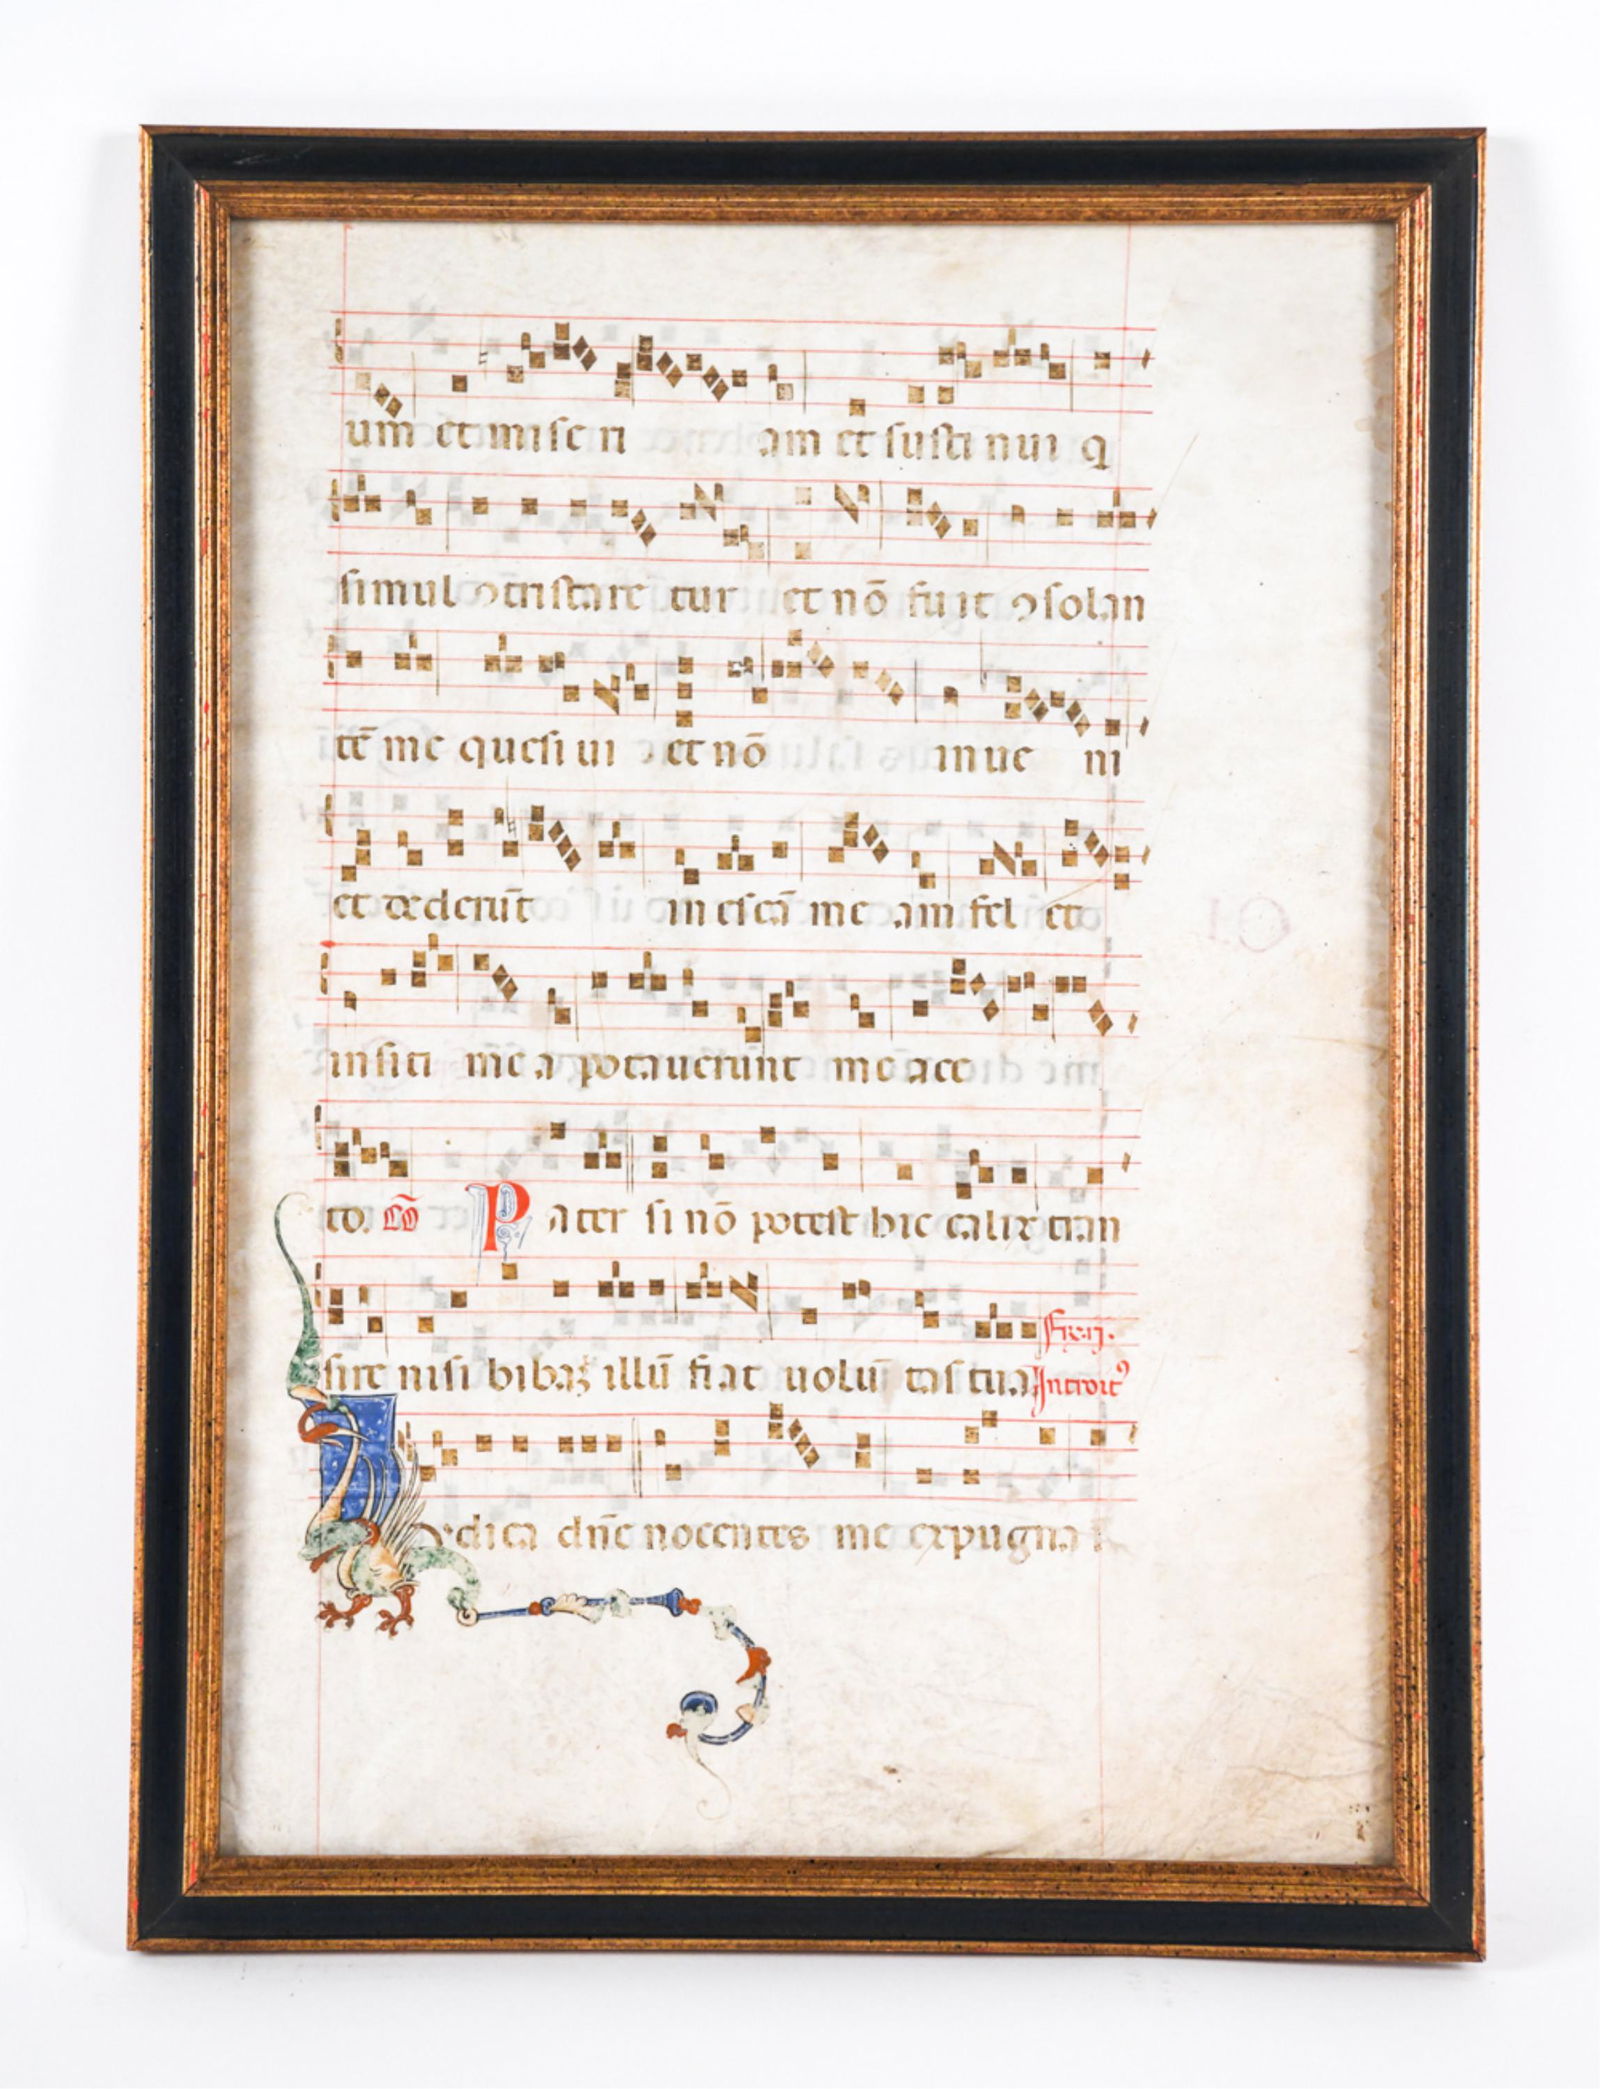 um̄ et miseri am et sustinui q
simul ꝯtristare tur et nō fuit ꝯsolan
tē me quesiui et nō inue ni
et dederūt in escā me am fel et
in siti me a potauerunt me ace
to. Cō Pater si nō potest hic calix tran
sire nisi bibaꝫ illū fiat uolū tas tua Introitꝰ
Iudica dn̄e nocentes me expugna